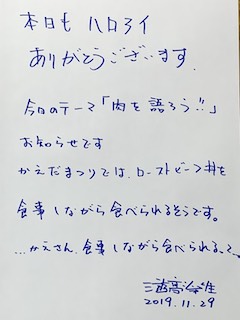 本日も ハロワイ
ありがとうございます.
今日のテーマ「肉を語ろう!!」
お知らせです
かえだまつりでは、ローストビーフ丼を
食事しながら食べられるそうです。
...かえさん、食事しながら食べられるって、
2019.11.29